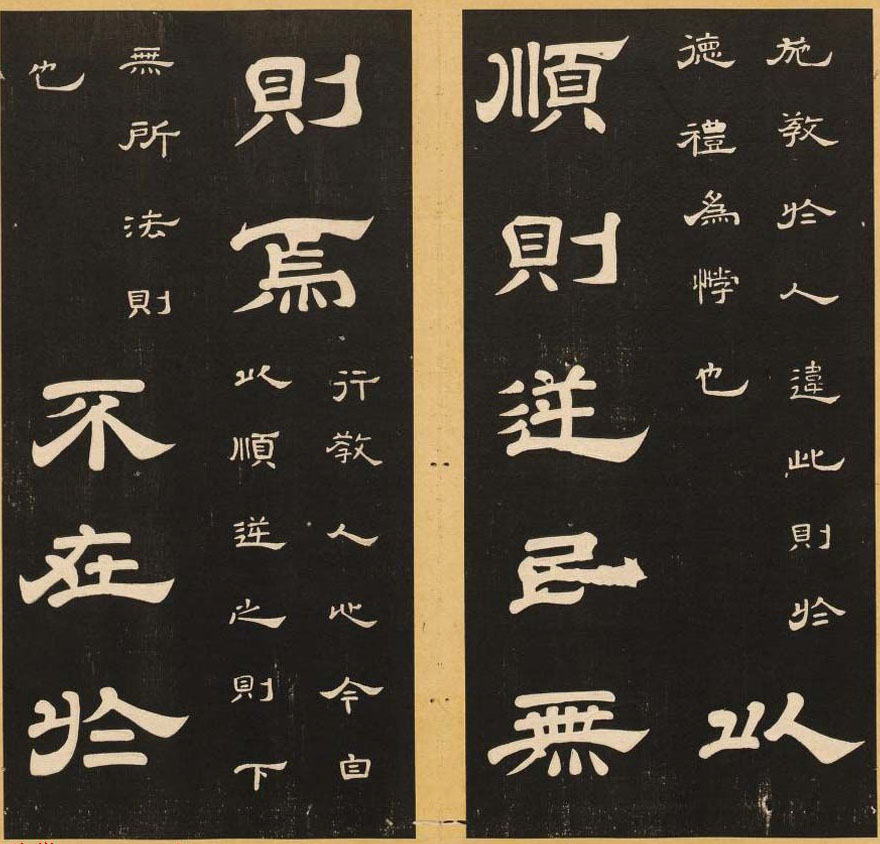 施教於人違此則於
德禮爲悖也
以
順則逆民無
則焉
行教
以順
人心今自
逆之則下
無所法則
也
不在於